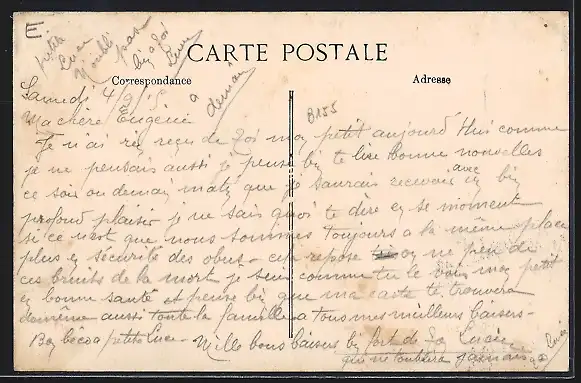 E
petite
Luce
n'oublie
pas
bz a toi
Lucien
a
demain
CARTE POSTALE
Correspondance
Adresse
B155
Samedi 4/9/15
Ma chère Eugénie
Je n'ai rien reçu de toi mon petit aujourd'Hui comme
je ne pensais aussi je pense bien te lire bonne nouvelles
ce soir ou demain matin que je saurais recevoir avec un bien
profond plaisir je ne sais quoi te dire en se moment
si ce n'est que nous sommes toujours a la même place
plus en sécurité des obus - cela repose on ne peu de
ces bruits de la mort je suis comme tu le vois mon petit
en bonne santé et pense bien que ma carte te trouvera
de même aussi toute la famille a tous mes meilleurs baisers -
Bon becos petite Luce - Mille bons baisers bien fort de ton Lucien
qui ne t'oubliera jamais